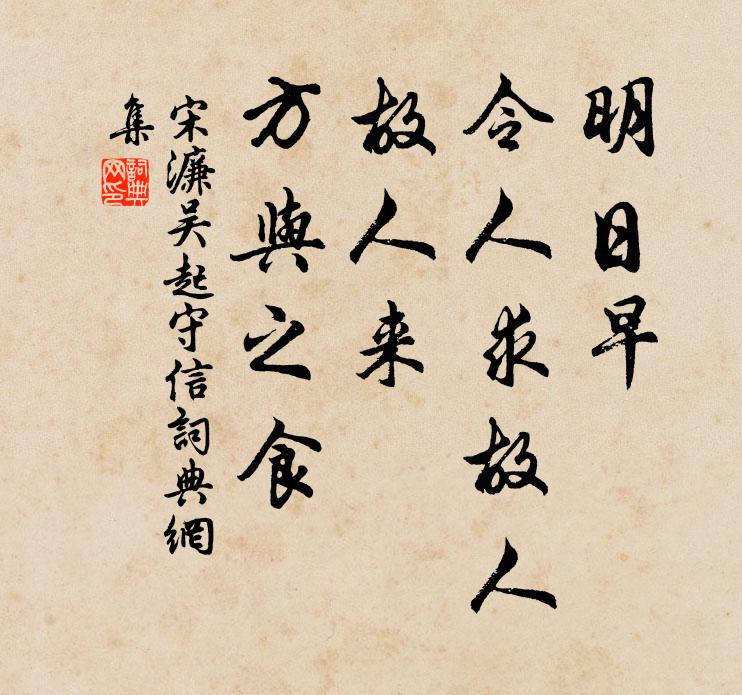 明日早
令人求故人
故人来
方與之食
宋濂吴起守信詞典網
集
詞典
网印